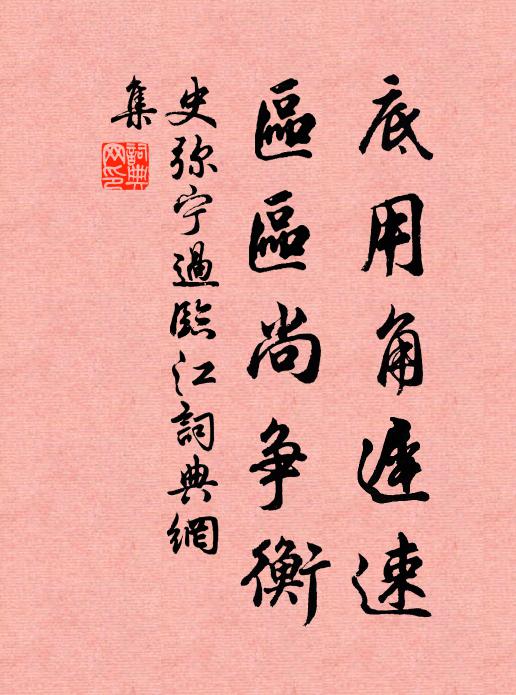 底用角遲速
區區尚爭衡
史弥宁過臨江詞典網
集
詞典
网印